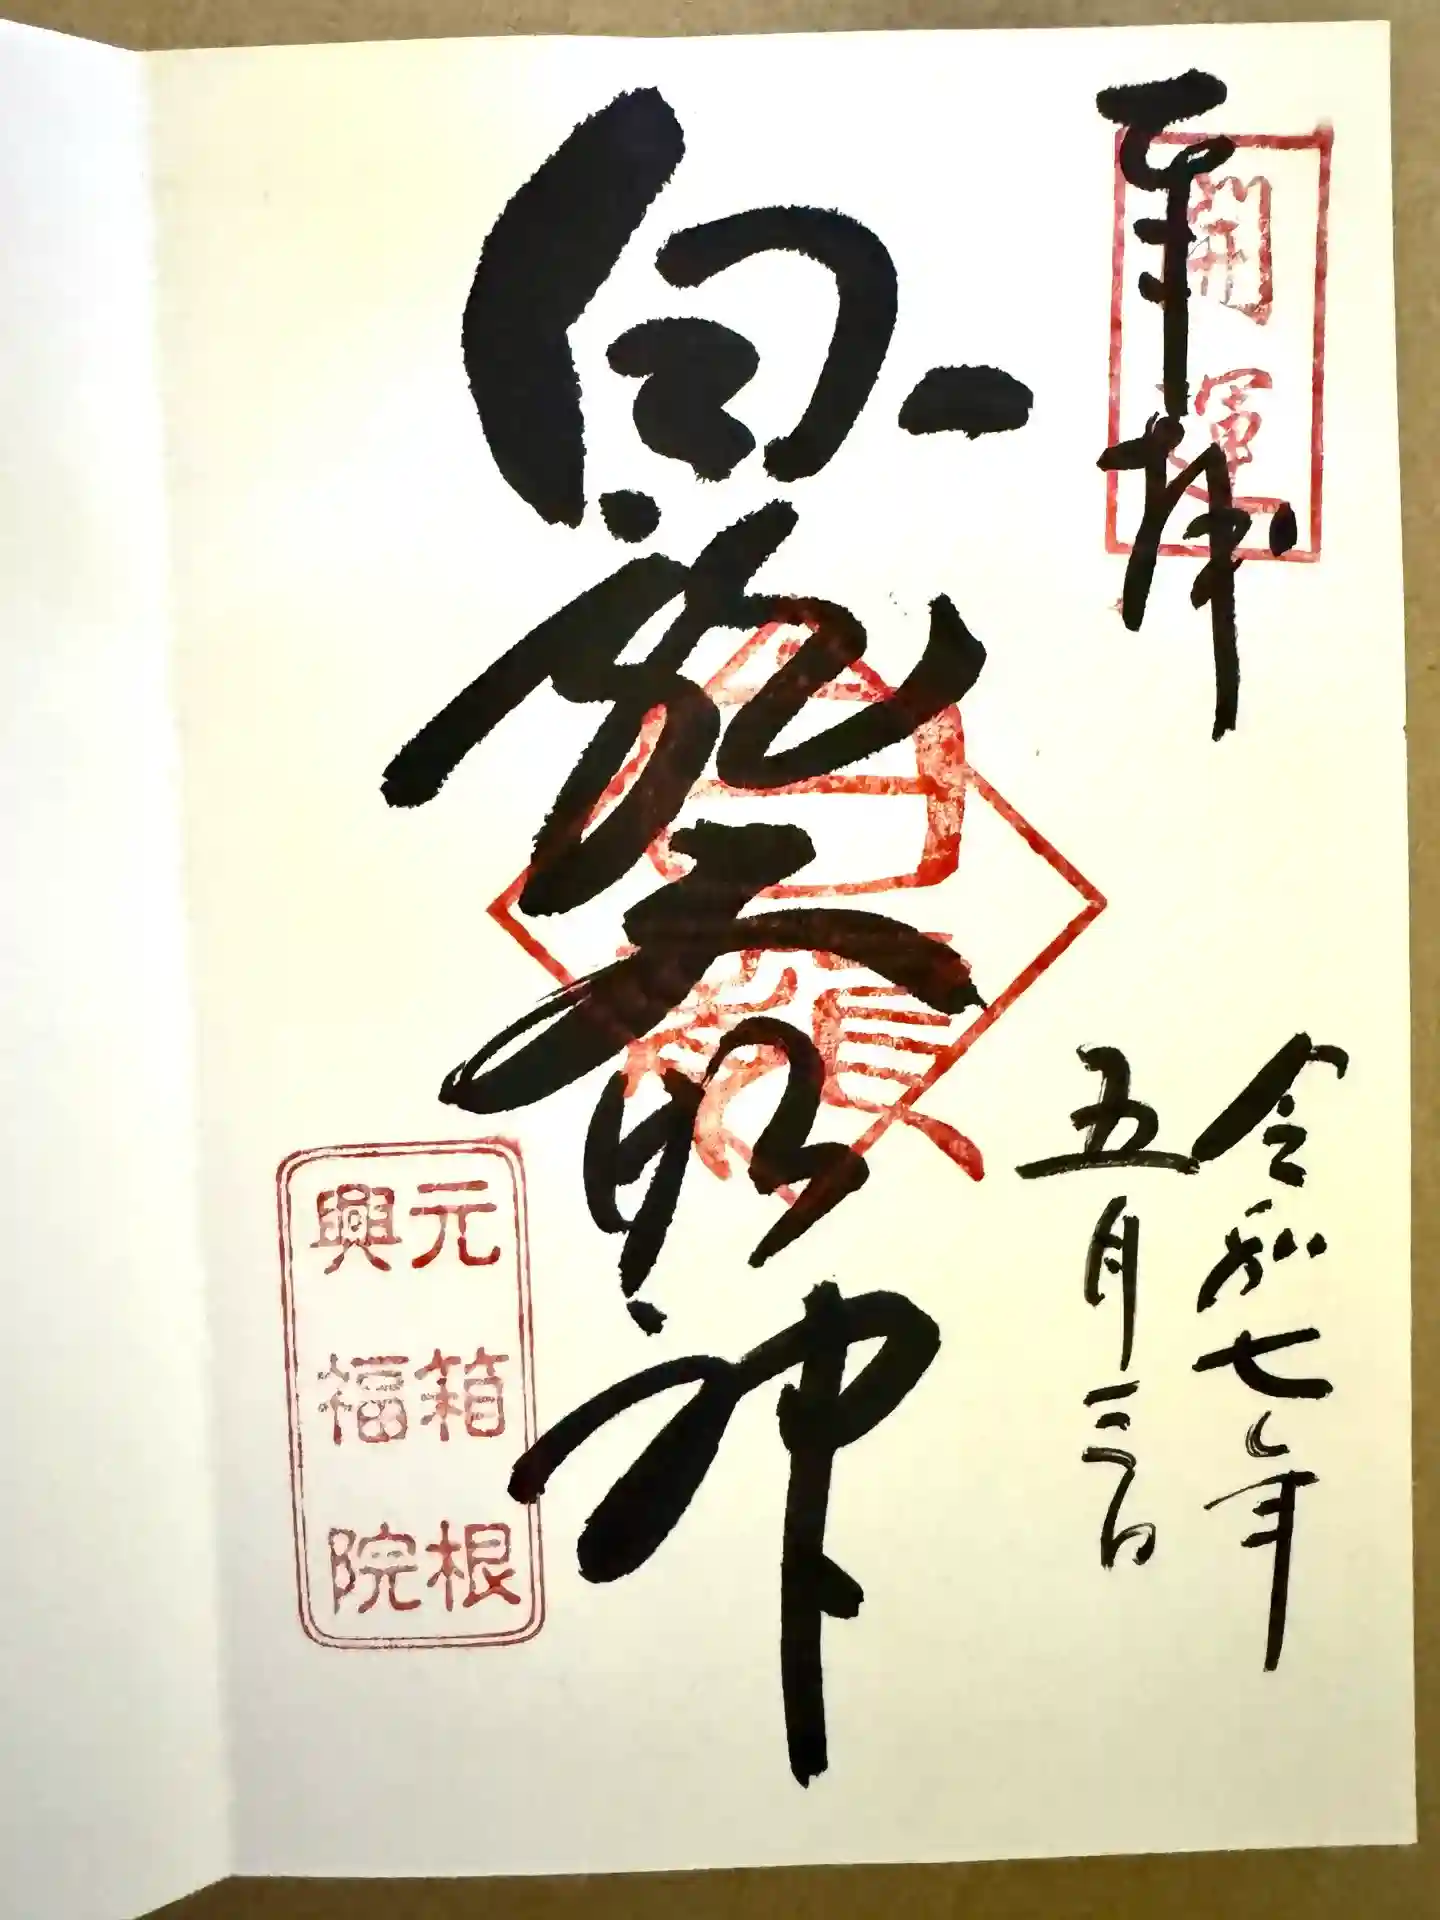 奉拝
開運
令和七年
五月三日
白龍大明神
白龍
元箱根
興福院